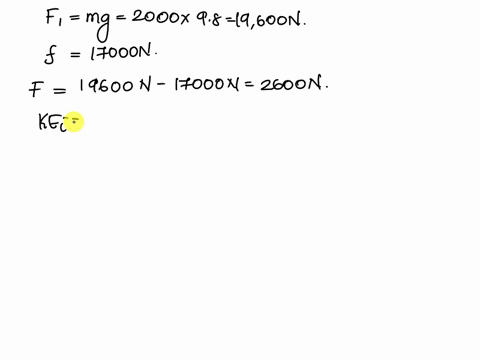 F₁ = mg = 2000 x 9.8 = 19,600N.
f = 17000N.
F = 19600 N - 17000N = 2600N.
KEi =